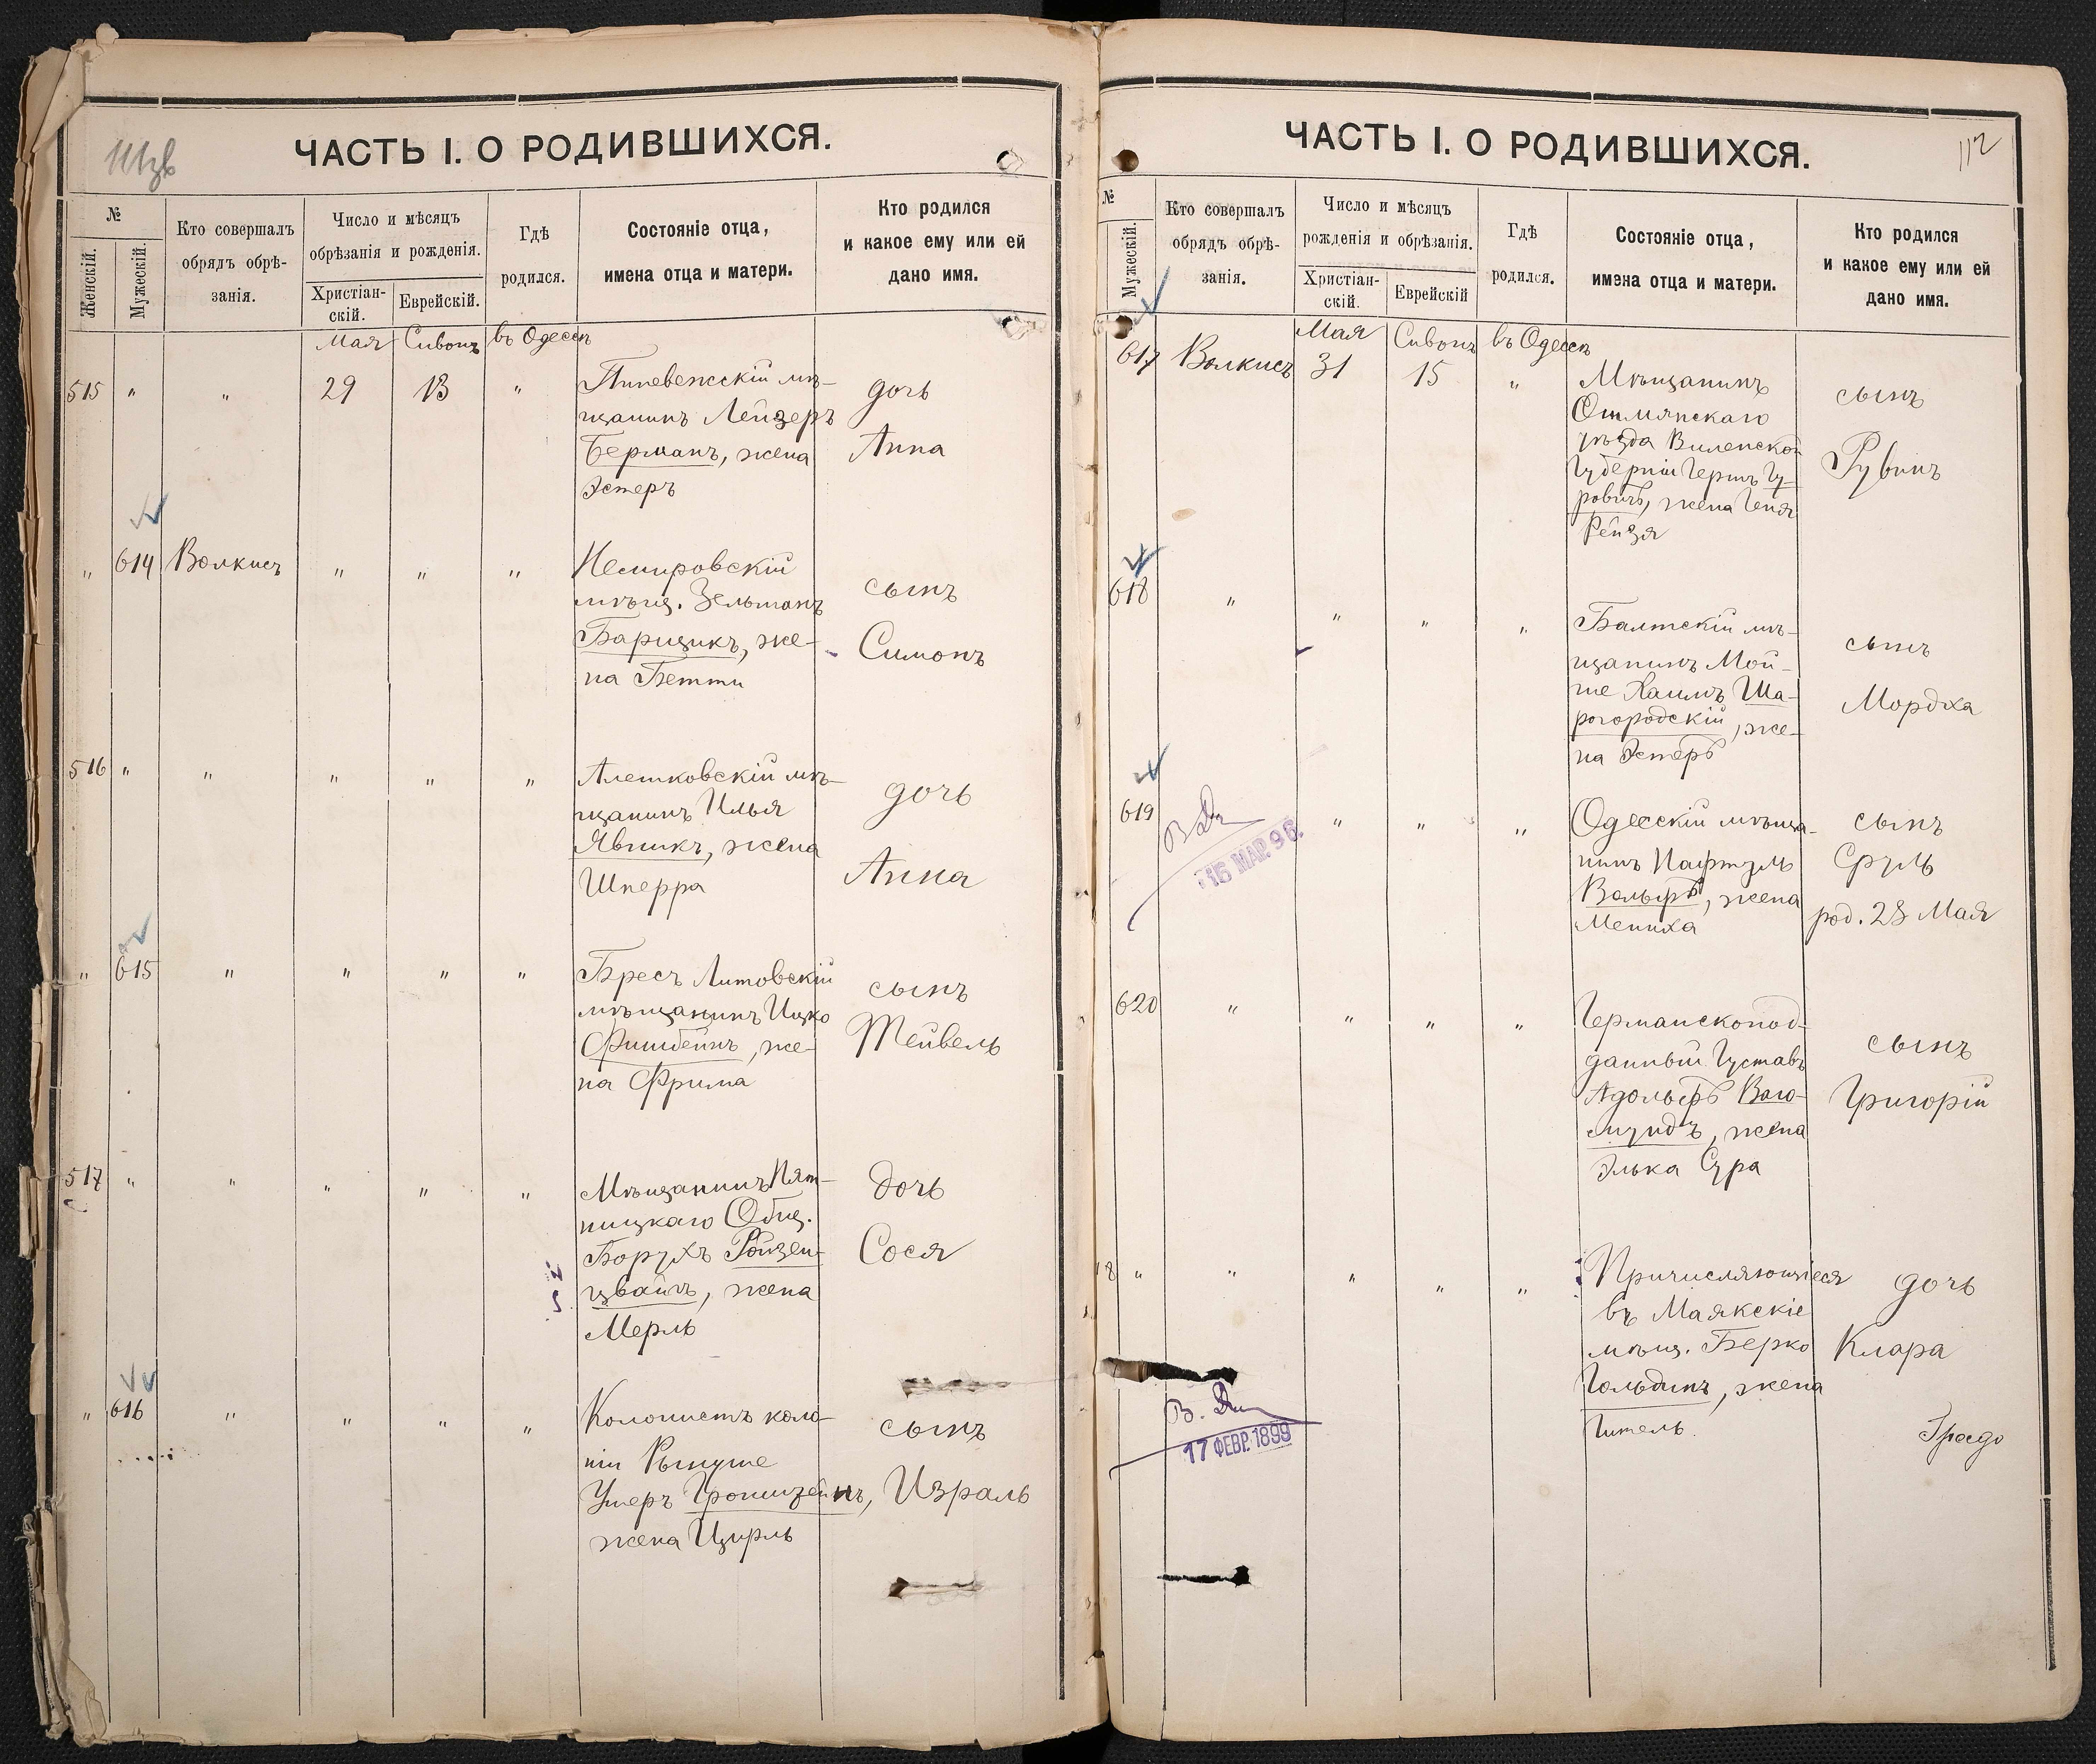 111зв
ЧАСТЬ I. О РОДИВШИХСЯ.
№
Женскій.
Мужескій.
Кто совершалъ
обрядъ обрѣ-
занія.
Число и мѣсяцъ
обрѣзанія и рожденія.
Христіан-
скій.
Еврейскій.
Гдѣ
родился.
Состояніе отца,
имена отца и матери.
Кто родился
и какое ему или ей
дано имя.
Мая Сивонъ въ Одессѣ
515 " " 29 13 "
Поневежскій мѣ-
щанинъ Лейзеръ
Берманъ, жена
Эстеръ
дочь
Анна
" 614 Волкисъ " " "
Немировскій
мѣщ. Зельманъ
Барщикъ, же-
на Бетти
сынъ
Симонъ
516 " " " " "
Алешковскій мѣ-
щанинъ Илья
Явникъ, жена
Шперра
дочь
Анна
" 615 " " " "
Брестъ Литовскій
мѣщанинъ Ицко
Фишбейнъ, же-
на Фрима
сынъ
Тейвель
517 " " " " "
Мѣщанинъ Пят-
ницкаго Общ.
Борухъ Ройзен-
цвайгъ, жена
Мерль
дочь
Сося
" 616 " " " "
Колонистъ коло-
ніи
Умеръ
жена Цирль
сынъ
Израль
ЧАСТЬ I. О РОДИВШИХСЯ.
112
№
Мужескій.
Кто совершалъ
обрядъ обрѣ-
занія.
Число и мѣсяцъ
рожденія и обрѣзанія.
Христіан-
скій.
Еврейскій
Гдѣ
родился.
Состояніе отца,
имена отца и матери.
Кто родился
и какое ему или ей
дано имя.
Мая Сивонъ въ Одессѣ
617 Волкисъ 31 15 "
Мѣщанинъ
Ошмянскаго
уѣзда Виленской
Губерніи Гершъ Гу-
ровичъ, жена Геня
Рейзя
сынъ
Рувинъ
618 " " " "
Балтскій мѣ-
щанинъ Мой-
ше Хаимъ Ша-
рогородскій, же-
на Эстеръ
сынъ
Мордха
619 " " "
15 МАР. 96.
Одесскій мѣща-
нинъ Нафтуль
Вольфъ, жена
Мениха
сынъ
Сруль
род. 28 Мая
620 " " " "
Германскопод-
данный Густавъ
Адольфъ Ваго-
мундъ, жена
Элька Сура
сынъ
Григорій
18 " " " " "
Причисляющіеся
въ Маякскіе
мѣщ. Берко
Гольдинъ, жена
Гитель.
дочь
Клара
17 ФЕВР. 1899